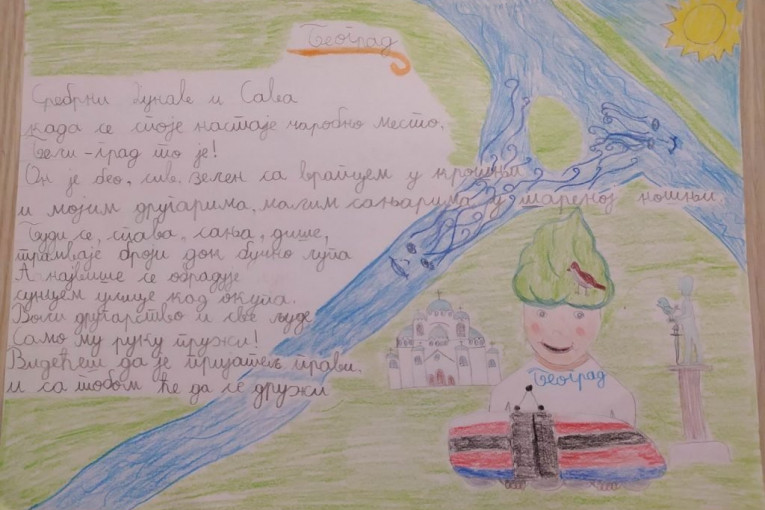 Београд
Сребрни Дунаве и Сава
када се споје настаје чаробно место.
Бели-град то је!
Он је бео, сив, зелен са врапцем у крошњи
и мојим другарима, малим сањарима у шареној ношњи.
Буди се, спава, сања, дише,
трамваје броји док бучно лупа
А највише се обрадује
сунцем улице кад окупа.
Воли другарство и све људе
Само му руку пружи!
Видећеш да је пријатељ прави,
и са тобом ће да се дружи
Београд